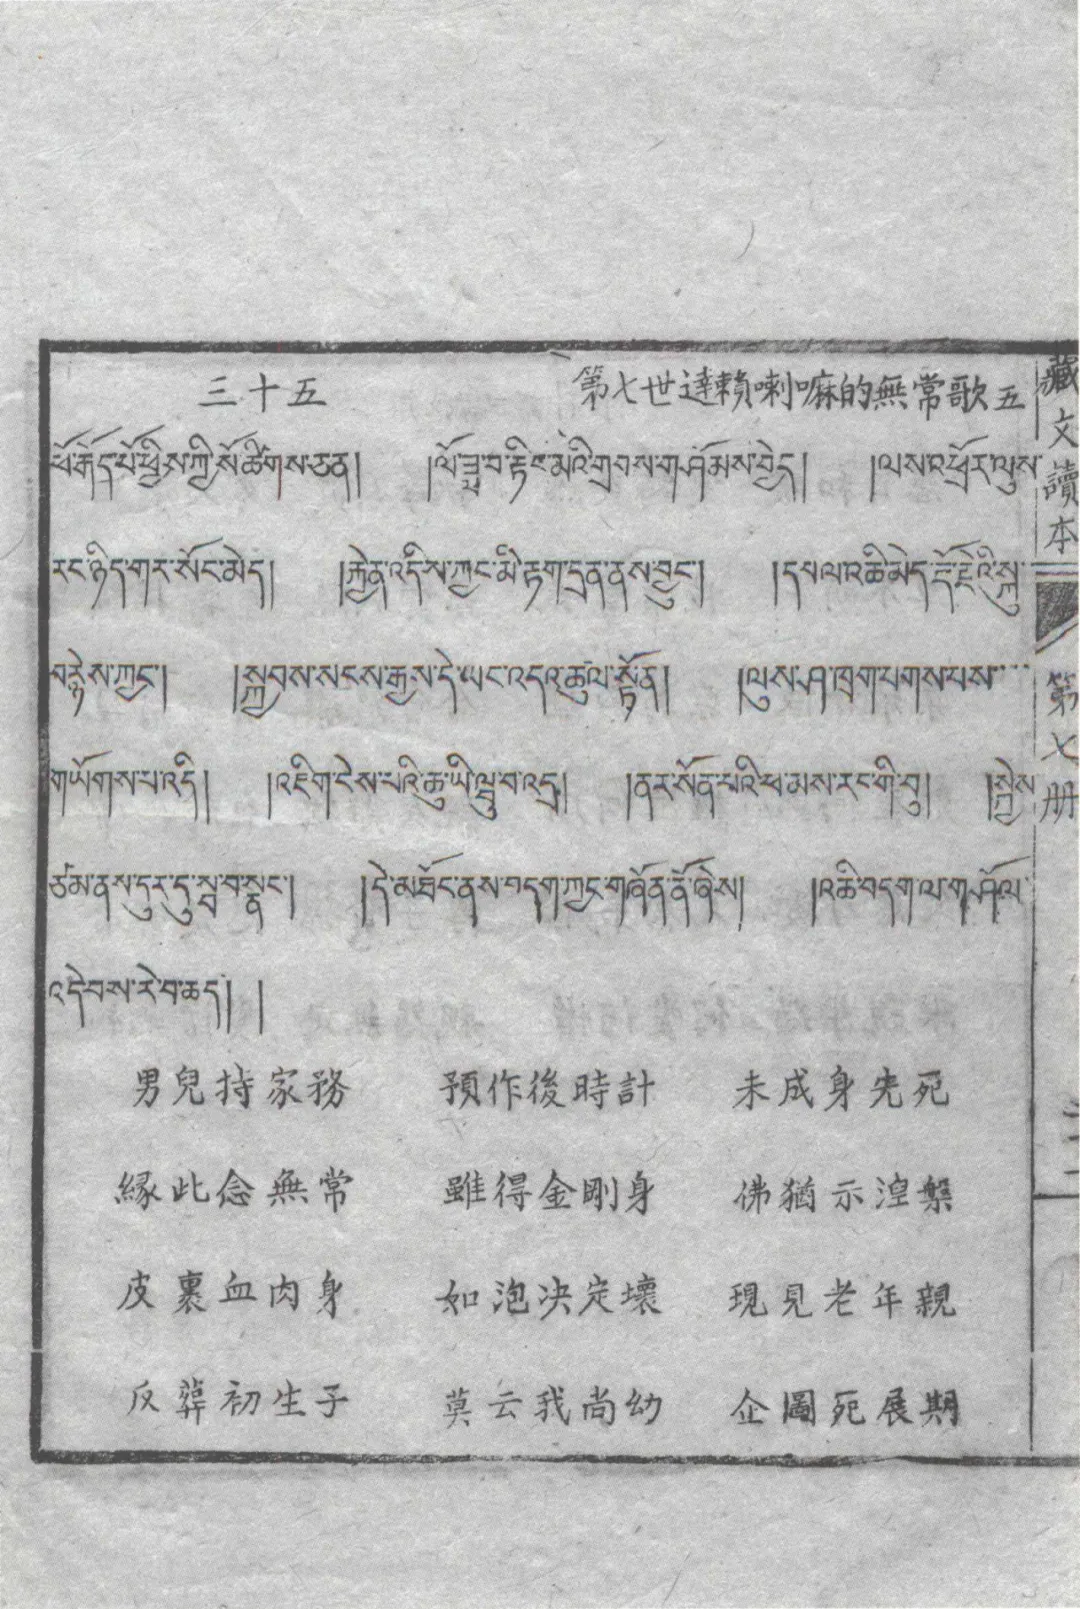 三十五 第七世達賴喇嘛的無常歌五
ཕོ་རྒོད་པོ་ཕྱིས་ཀྱི་སོ་ཚིགས་ཅན། །ལོ་ཟླ་བ་རྟིང་མེའི་གྲབས་གཤོམས་བྱེད། །ལས་འཕྲོར་ལུས་
རང་ཉིད་གར་སོང་མེད། །རྐྱེན་འདིས་ཀྱང་མི་རྟག་དྲན་ནས་བྱུང་། །དཔལ་འཆི་མེད་རྡོ་རྗེའི་སྐུ་
བརྙེས་ཀྱང་། །སྐྱབས་སངས་རྒྱས་དེ་ཡང་འདའ་ཚུལ་སྟོན། །ལུས་ཤ་ཁྲག་པགས་པས་
གཡོགས་པ་འདི། །འཇིག་ངེས་པའི་ཆུ་ཡི་ལྦུ་བ་འདྲ། །ནར་སོན་པའི་ཕ་མས་རང་གི་བུ། །སྐྱེས་
ཙམ་ནས་དུར་དུ་སྦ་བ་སྣང་། །དེ་མཐོང་ནས་བདག་ཀྱང་གཞོན་ནོ་ཞེས། །འཆི་བདག་ལ་གཤོལ་
འདེབས་རེ་བ་ཆད། །
男兒持家務 預作後時計 未成身先死
緣此念無常 雖得金剛身 佛猶示湼槃
皮裹血肉身 如泡決定壞 現見老年親
反葬初生子 莫云我尚幼 企圖死展期
藏文讀本 第七册